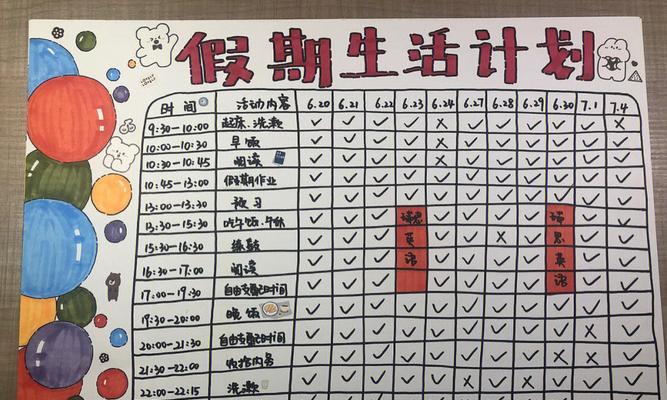 假期生活计划
时 间 活动内容 6.20 6.21 6.22 6.23 6.24 6.27 6.28 6.29 6.30 7.1 7.4
9:30-10:00 起床、洗漱
10:00-10:30 早饭
10:30-10:45 阅读
10:45-13:00 假期作业
13:00-13:30 预习
13:30-15:30 吃午饭、午休 思
15:30-16:30 练鼓 英 思
16:30-17:00 阅读 语 英
17:00-19:30 自由支配时间 语
19:30-20:00 晚饭
20:00-21:30 自由支配时间
21:30-22:00 收拾内务
22:00-22:15 洗漱